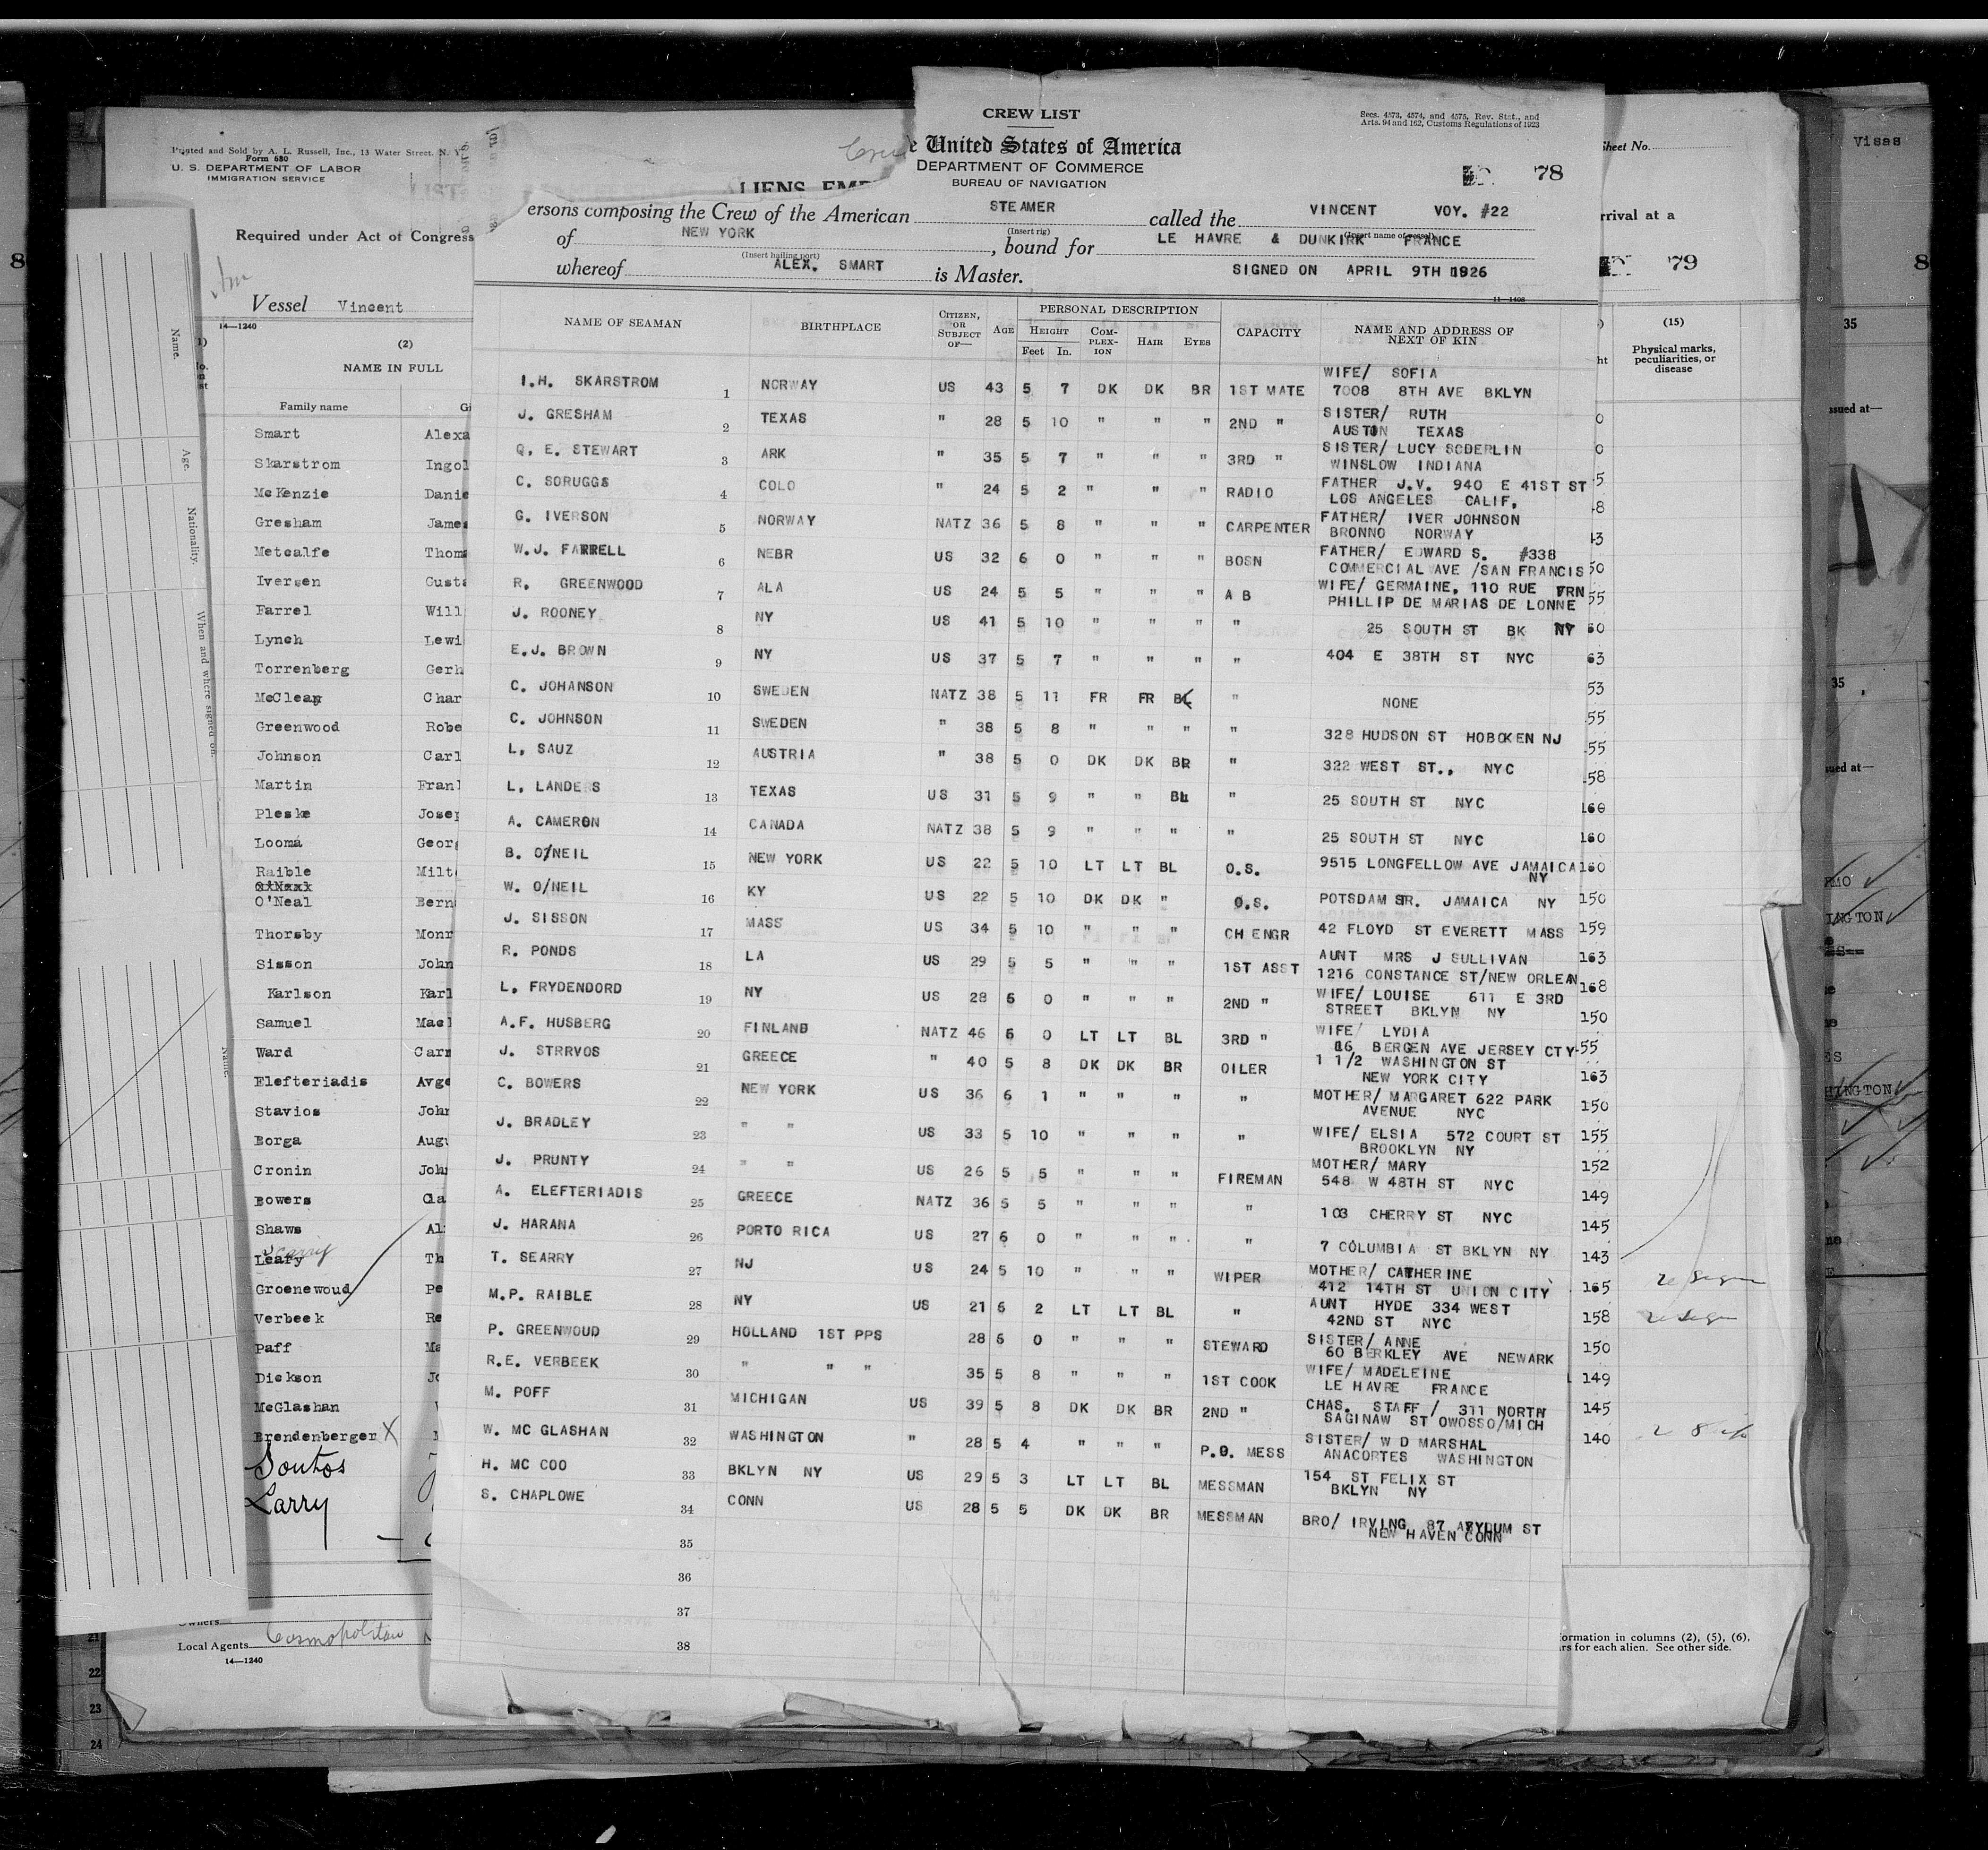 CREW LIST
Secs. 4573, 4574, and 4575, Rev. Stat., and
Arts. 94 and 162, Customs Regulations of 1923
e United States of America
DEPARTMENT OF COMMERCE
BUREAU OF NAVIGATION
78
ersons composing the Crew of the American STEAMER called the VINCENT VOY. #22
(Insert rig) (Insert name of vessel)
of NEW YORK, bound for LE HAVRE & DUNKIRK FRANCE
(Insert hailing port)
whereof ALEX. SMART is Master. SIGNED ON APRIL 9TH 1926
11—1408
NAME OF SEAMAN BIRTHPLACE CITIZEN, OR SUBJECT OF— AGE PERSONAL DESCRIPTION CAPACITY NAME AND ADDRESS OF NEXT OF KIN
HEIGHT COMPLEXION HAIR EYES
Feet In.
I.H. SKARSTROM 1 NORWAY US 43 5 7 DK DK BR 1ST MATE WIFE/ SOFIA
7008 8TH AVE BKLYN
J. GRESHAM 2 TEXAS " 28 5 10 " " " 2ND " SISTER/ RUTH
AUSTIN TEXAS
Q. E. STEWART 3 ARK " 35 5 7 " " " 3RD " SISTER/ LUCY SODERLIN
WINSLOW INDIANA
C. SORUGGS 4 COLO " 24 5 2 " " " RADIO FATHER J.V. 940 E 41ST ST
LOS ANGELES CALIF,
G. IVERSON 5 NORWAY NATZ 36 5 8 " " " CARPENTER FATHER/ IVER JOHNSON
BRONNO NORWAY
W.J. FARRELL 6 NEBR US 32 6 0 " " " BOSN FATHER/ EDWARD S. #338
COMMERCIAL AVE /SAN FRANCIS
R. GREENWOOD 7 ALA US 24 5 5 " " " A B WIFE/ GERMAINE, 110 RUE FRN
PHILLIP DE MARIAS DE LONNE
J. ROONEY 8 NY US 41 5 10 " " " " 25 SOUTH ST BK NY
E.J. BROWN 9 NY US 37 5 7 " " " " 404 E 38TH ST NYC
C. JOHANSON 10 SWEDEN NATZ 38 5 11 FR FR BL " NONE
C. JOHNSON 11 SWEDEN " 38 5 8 " " " " 328 HUDSON ST HOBOKEN NJ
L. SAUZ 12 AUSTRIA " 38 5 0 DK DK BR " 322 WEST ST., NYC
L. LANDERS 13 TEXAS US 31 5 9 " " BL " 25 SOUTH ST NYC
A. CAMERON 14 CANADA NATZ 38 5 9 " " " " 25 SOUTH ST NYC
B. O/NEIL 15 NEW YORK US 22 5 10 LT LT BL O.S. 9515 LONGFELLOW AVE JAMAICA
NY
W. O/NEIL 16 KY US 22 5 10 DK DK " O.S. POTSDAM STR. JAMAICA NY
J. SISSON 17 MASS US 34 5 10 " " " CH ENGR 42 FLOYD ST EVERETT MASS
R. PONDS 18 LA US 29 5 5 " " " 1ST ASST AUNT MRS J SULLIVAN
1216 CONSTANCE ST/NEW ORLEAN
L. FRYDENDORD 19 NY US 28 6 0 " " " 2ND " WIFE/ LOUISE 611 E 3RD
STREET BKLYN NY
A.F. HUSBERG 20 FINLAND NATZ 46 6 0 LT LT BL 3RD " WIFE/ LYDIA
16 BERGEN AVE JERSEY CTY
J. STRRVOS 21 GREECE " 40 5 8 DK DK BR OILER 1 1/2 WASHINGTON ST
NEW YORK CITY
C. BOWERS 22 NEW YORK US 36 6 1 " " " " MOTHER/ MARGARET 622 PARK
AVENUE NYC
J. BRADLEY 23 " " US 33 5 10 " " " " WIFE/ ELSIA 572 COURT ST
BROOKLYN NY
J. PRUNTY 24 " " US 26 5 5 " " " FIREMAN MOTHER/ MARY
548 W 48TH ST NYC
A. ELEFTERIADIS 25 GREECE NATZ 36 5 5 " " " " 103 CHERRY ST NYC
J. HARANA 26 PORTO RICA US 27 6 0 " " " " 7 COLUMBIA ST BKLYN NY
T. SEARRY 27 NJ US 24 5 10 " " " WIPER MOTHER/ CATHERINE
412 14TH ST UNION CITY
M.P. RAIBLE 28 NY US 21 6 2 LT LT BL " AUNT HYDE 334 WEST
42ND ST NYC
P. GREENWOUD 29 HOLLAND 1ST PPS 28 6 0 " " " STEWARD SISTER/ ANNE
60 BERKLEY AVE NEWARK
R.E. VERBEEK 30 " " " 35 5 8 " " " 1ST COOK WIFE/ MADELEINE
LE HAVRE FRANCE
M. POFF 31 MICHIGAN US 39 5 8 DK DK BR 2ND " CHAS. STAFF / 311 NORTH
SAGINAW ST OWOSSO/MICH
W. MC GLASHAN 32 WASHINGTON " 28 5 4 " " " P.O. MESS SISTER/ W D MARSHAL
ANACORTES WASHINGTON
H. MC COO 33 BKLYN NY US 29 5 3 LT LT BL MESSMAN 154 ST FELIX ST
BKLYN NY
S. CHAPLOWE 34 CONN US 28 5 5 DK DK BR MESSMAN BRO/ IRVING 87 ASYLUM ST
NEW HAVEN CONN
35
36
37
38
Printed and Sold by A. L. Russell, Inc., 13 Water Street. N. Y.
Form 680
U. S. DEPARTMENT OF LABOR
IMMIGRATION SERVICE
LIST
Required under Act of Congress
Vessel Vincent
14—1240
(2)
NAME IN FULL
Family name
Smart Alexa
Skarstrom Ingol
McKenzie Danie
Gresham James
Metcalfe Thom
Iversen Gusta
Farrel Will
Lynch Lewi
Torrenberg Gerh
McClean Char
Greenwood Robe
Johnson Carl
Martin Fran
Pleske Josep
Looma Georg
Raible Milt
O'Neal Bern
Thorsby Monr
Sisson John
Karlson Karl
Samuel Mael
Ward Carr
Elefteriadis Avge
Stavios John
Borga Augu
Cronin John
Bowers Cla
Shaws Al
Scarry
Leafy Th
Groenewoud Pe
Verbeek Re
Paff Ma
Dickson Jo
McGlashan
Brendenberger X
Soutos
Larry
Owners
Local Agents Cosmopolitan
14—1240
Name.
Age.
Nationality.
When and where signed on.
Name.
Sheet No.
rrival at a
79
(15)
Physical marks,
peculiarities, or
disease
160
160
160
150
159
163
168
150
163
150
155
152
149
145
143
165
158
150
149
145
140
ormation in columns (2), (5), (6),
rs for each alien. See other side.
Visas
8
8
35
ssued at—
35
sued at—
INGTON
HINGTON
21
22
23
24